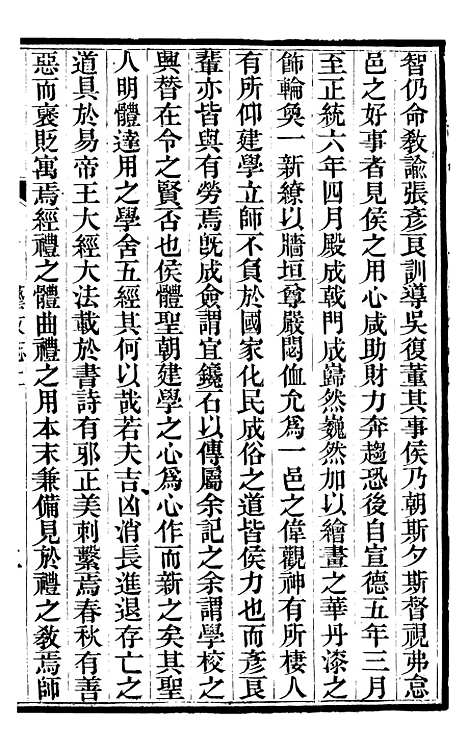 智仍命敎諭張彥良訓導吳復董其事侯乃朝斯夕斯督視弗怠
邑之好事者見侯之用心咸助財力奔趨恐後自宣德五年三月
至正統六年四月殿成戟門成巋然巍然加以繪畫之華丹漆之
飾輪奐一新繚以牆垣尊嚴閟侐允爲一邑之偉觀神有所棲人
有所仰建學立師不負於國家化民成俗之道皆侯力也而彥良
輩亦皆與有勞焉旣成僉謂宜鑱石以傳屬余記之余謂學校之
興替在令之賢否也侯體聖朝建學之心爲心作而新之矣其聖
人明體達用之學舍五經其何以哉若夫吉凶消長進退存亡之
道具於易帝王大經大法載於書詩有邪正美刺繫焉春秋有善
惡而褒貶寓焉經禮之體曲禮之用本末兼備見於禮之敎焉師
藝文志上